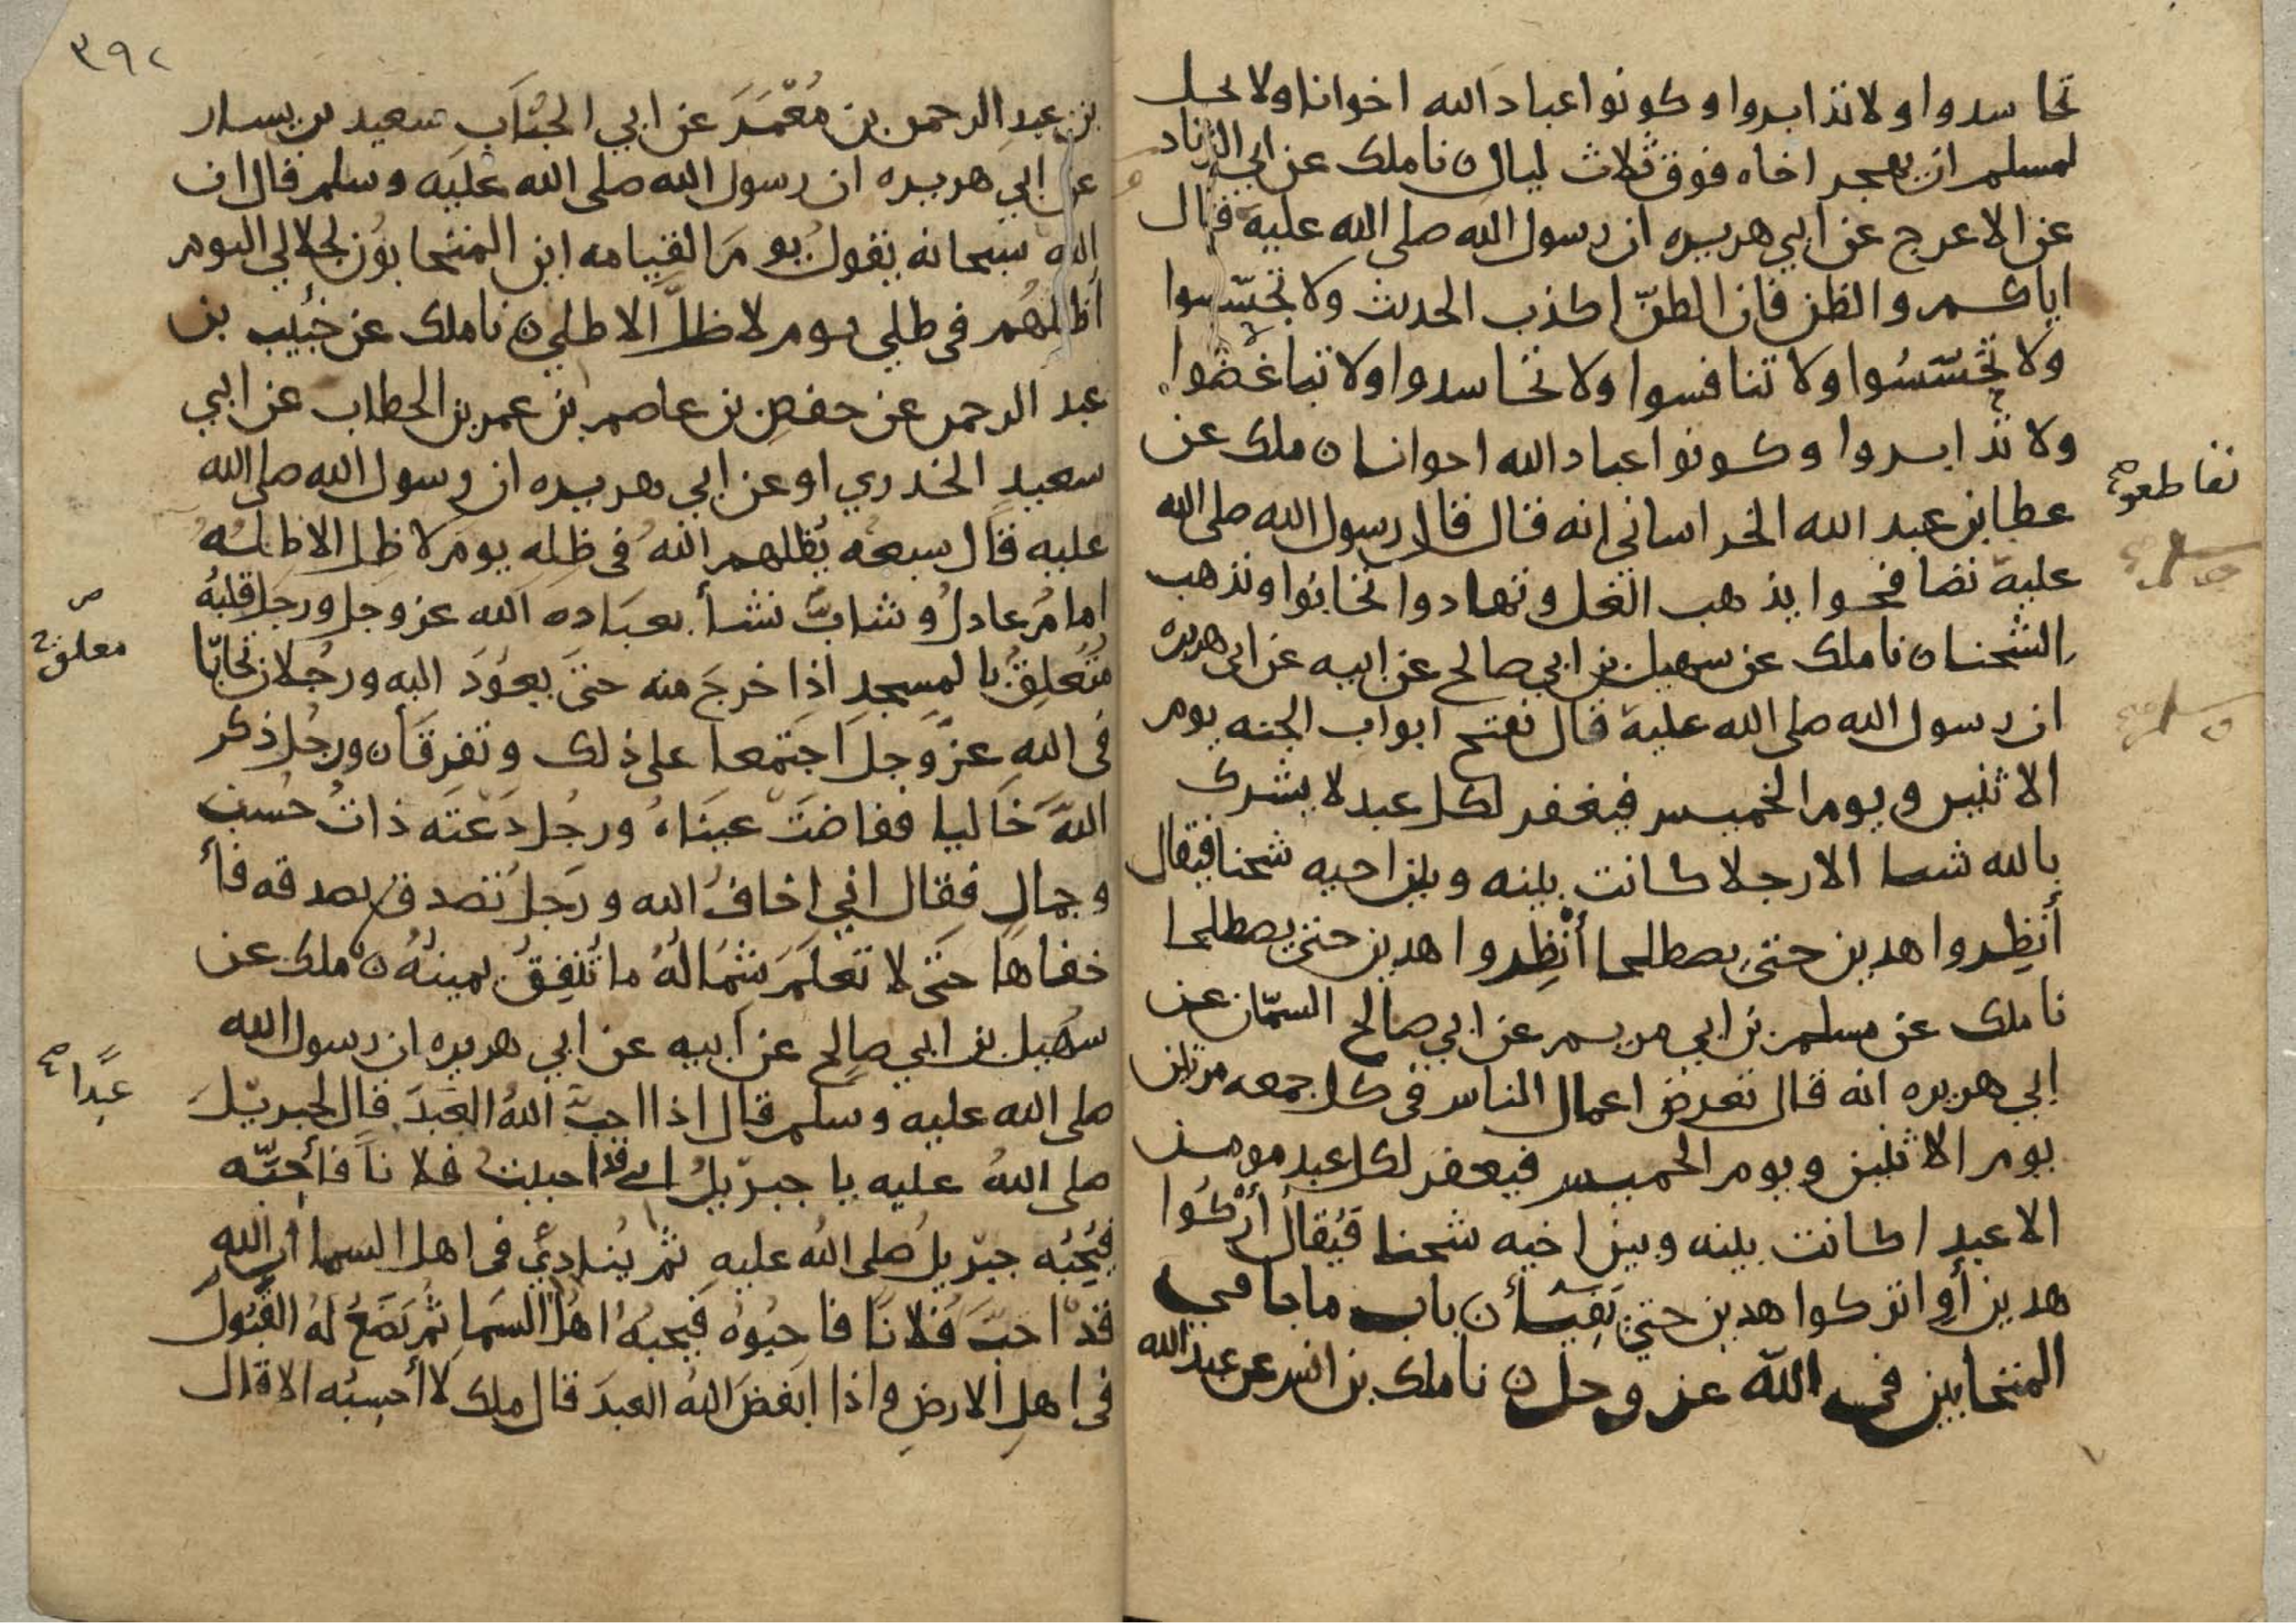 تحاسدوا ولا تدابروا وكونوا عباد الله اخوانا ولا يحل
لمسلم ان يهجر اخاه فوق ثلاث ليال ن نا ملك عن ابي الزناد
عن الاعرج عن ابي هريره ان رسول الله صلى الله عليه قال
اياكم والظن فان الظنّ اكذب الحديث ولا تجسّسوا
ولا تحسّسُوا ولا تنافسوا ولا تحاسدوا ولا تباغضوا
ولا تدابروا وكونوا عباد الله اخوانا ن ملك عن
تقاطعوا صح
عطا بن عبد الله الخراساني انه قال قال رسول الله صلى الله
عليه تصافحوا يذهب الغل وتهادوا تحابوا وتذهب
الشحنا ن نا ملك عن سهيل بن ابي صالح عن ابيه عن ابي هريره
ان رسول الله صلى الله عليه قال تفتح ابواب الجنه يوم
الاثنين ويوم الخميس فيغفر لكل عبد لا يشرك
بالله شيا الا رجلا كانت بينه وبين اخيه شحنا فيقال
أنظِروا هذين حتى يصطلحا أنْظِروا هذين حتى يصطلحا
نا ملك عن مسلم بن ابي مريم عن ابي صالح السمّان عن
ابي هريره انه قال تعرض اعمال الناس في كل جمعه مرتين
يوم الاثنين ويوم الخميس فيغفر لكل عبد مومن
الا عبدا كانت بينه وبين اخيه شحنا فيُقالُ أرْكُوا
هذين أو اتركوا هذين حتى يَفِيئأ ن باب ما جا في
المتحابين في الله عز وجل ن نا ملك بن انس عن عبد الله
٣٩٢
بن عبدِ الرحمن بن مَعْمَرَ عن ابي الحُبَابِ سعيد بن يسار
عن ابي هريره ان رسول الله صلى الله عليه وسلم قال ان
الله سبحانه يقول يومَ القيامه اين المتحابّونَ لجلالي اليوم
اظلهُم في ظلي يوم لا ظلَّ الا ظلي ن نا ملك عن خُبَيب بن
عبد الرحمن عن حفصِ بن عاصم بن عمر بن الخطاب عن ابي
سعيدٍ الخدري او عن ابي هريره ان رسول الله صلى الله
عليه قال سبعه يُظلهم اللهُ في ظِلِه يوم لا ظِل الا ظِلُهُ
امامُ عادلُ وشابٌ نشأ بعبَاده الله عز وجل ورجل قلبُهُ
مُتعلِقُ بالمسجدِ اذا خرجَ منه حتى يعُودَ اليه ورجُلان تحابّا
معلق
في اللهِ عزّ وجلَ اجتمعا على ذلك وتفرقَا ن ورجُل ذكر
اللهَ خَاليا ففاضتْ عينَاهُ ورجُل دَعَتَه ذاتُ حُسنٍ
وجمالٍ فقال اني اخافُ الله ورَجلُ تصدق بصدقه فأ
خفاها حتى لا تعلمَ شِمَالُهُ ما تُنفِقُ يمينُهُ ن نا ملك عن
سُهيلِ بن ابي صالحٍ عن ابيه عن ابي هريره ان رسول الله
صلى الله عليه وسلم قال اذا احبَّ اللهُ العَبدَ قال لجبريْلَ
عبدًا صح
صلى اللهُ عليه يا جبرّيلُ اني قد احببتُ فلانًا فأحِبّه
فيُحِبُه جبرّيلُ صلى اللهُ عليهِ ثم يُنادِيْ في اهل السما ان الله
قدْ احَبّ فُلانًا فاحِبُوهُ فيُحبهُ اهلُ السّماِ ثُم يَضَعُ لهُ القَبُولَ
في اهلِ الارضِ واذا ابغضَ اللهُ العبدَ قال ملك لا أحسِبُه الا قال